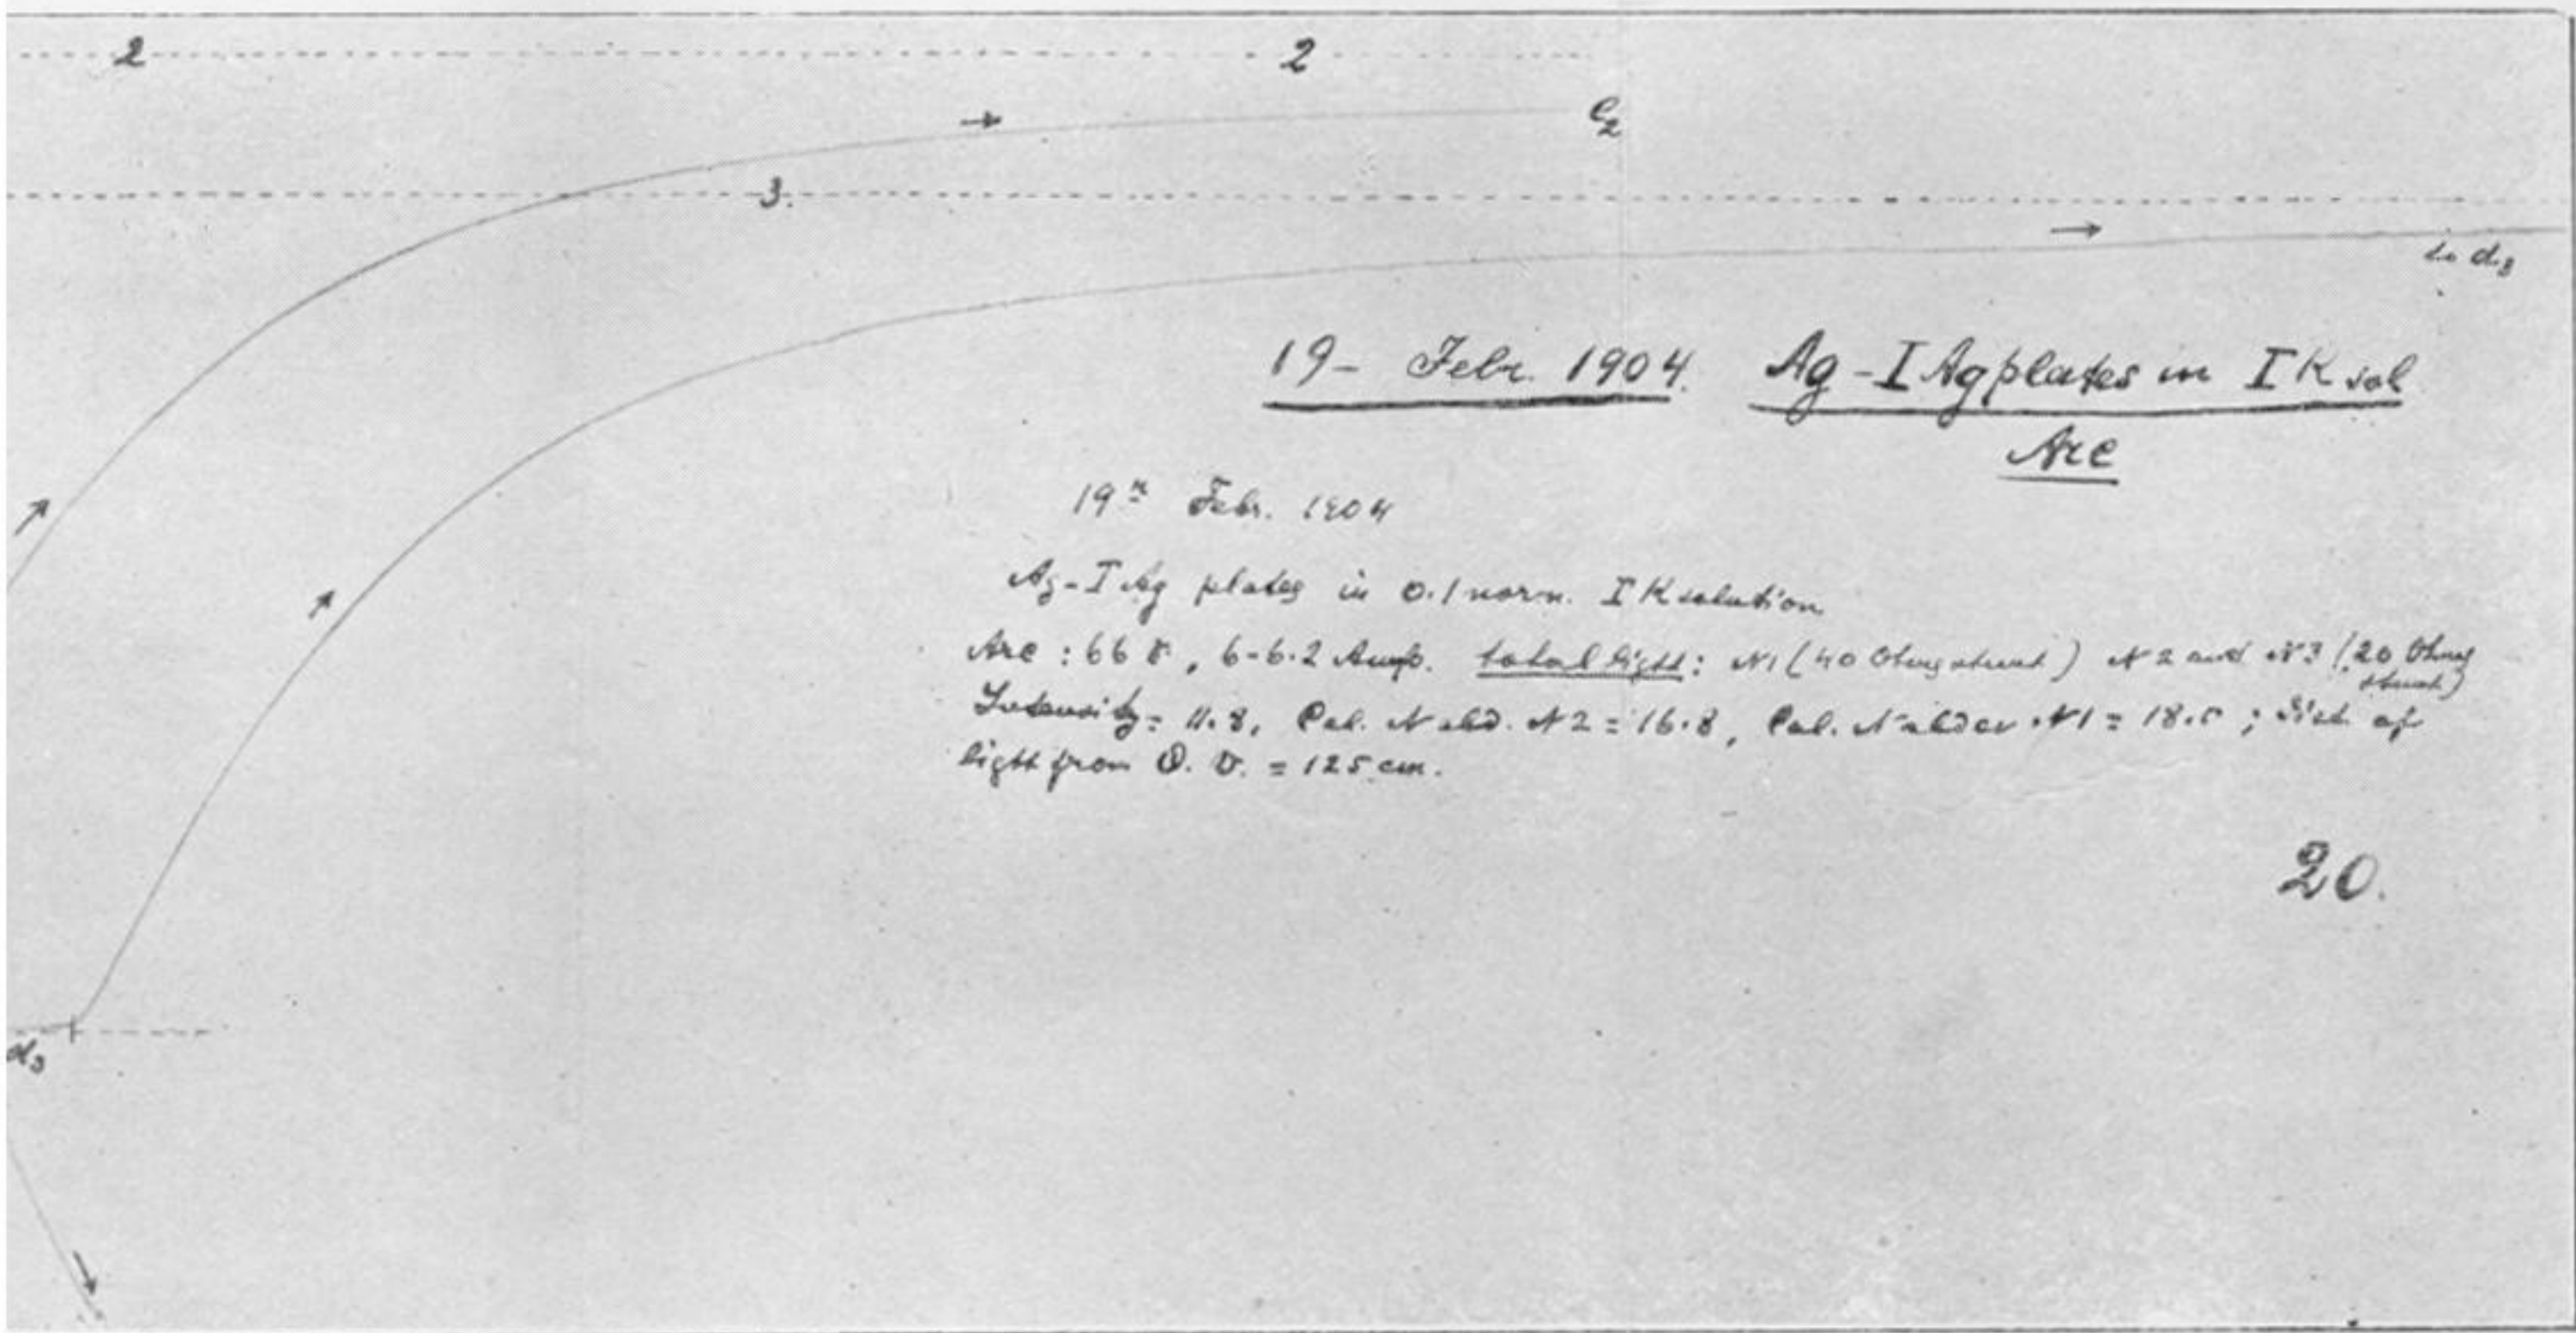 2 2
e2
3.
to d3
19- Febr. 1904. Ag-I Ag plates in I K sol
Arc
19th Febr. 1904
Ag-I Ag plates in 0.1 norm. I K solution
Arc : 66 V, 6-6.2 Amp. total light: N1 (40 Ohms shunt) N2 and N3 (20 Ohms
shunt)
Intensity = 11.8, Cal. N2 = 16.8, Cal. N1 = 18.5 ; dist. of
light from = 125 cm.
20.
d3